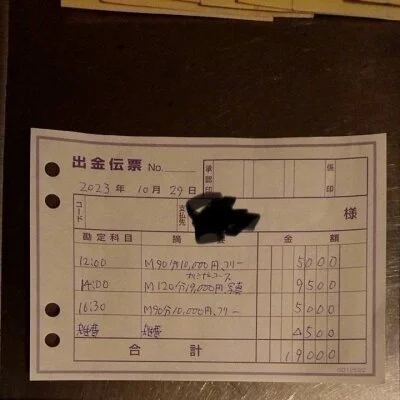 出金伝票 No.
承認印 係印
2023年10月29日
コード 支払先 様
勘定科目 摘要 金額
12:00 M90分10,000円、フリー 5000
14:00 M120分19,000円、写真 9500
16:30 M90分10,000円、フリー 5000
雑費 雑費 △500
合計 19000